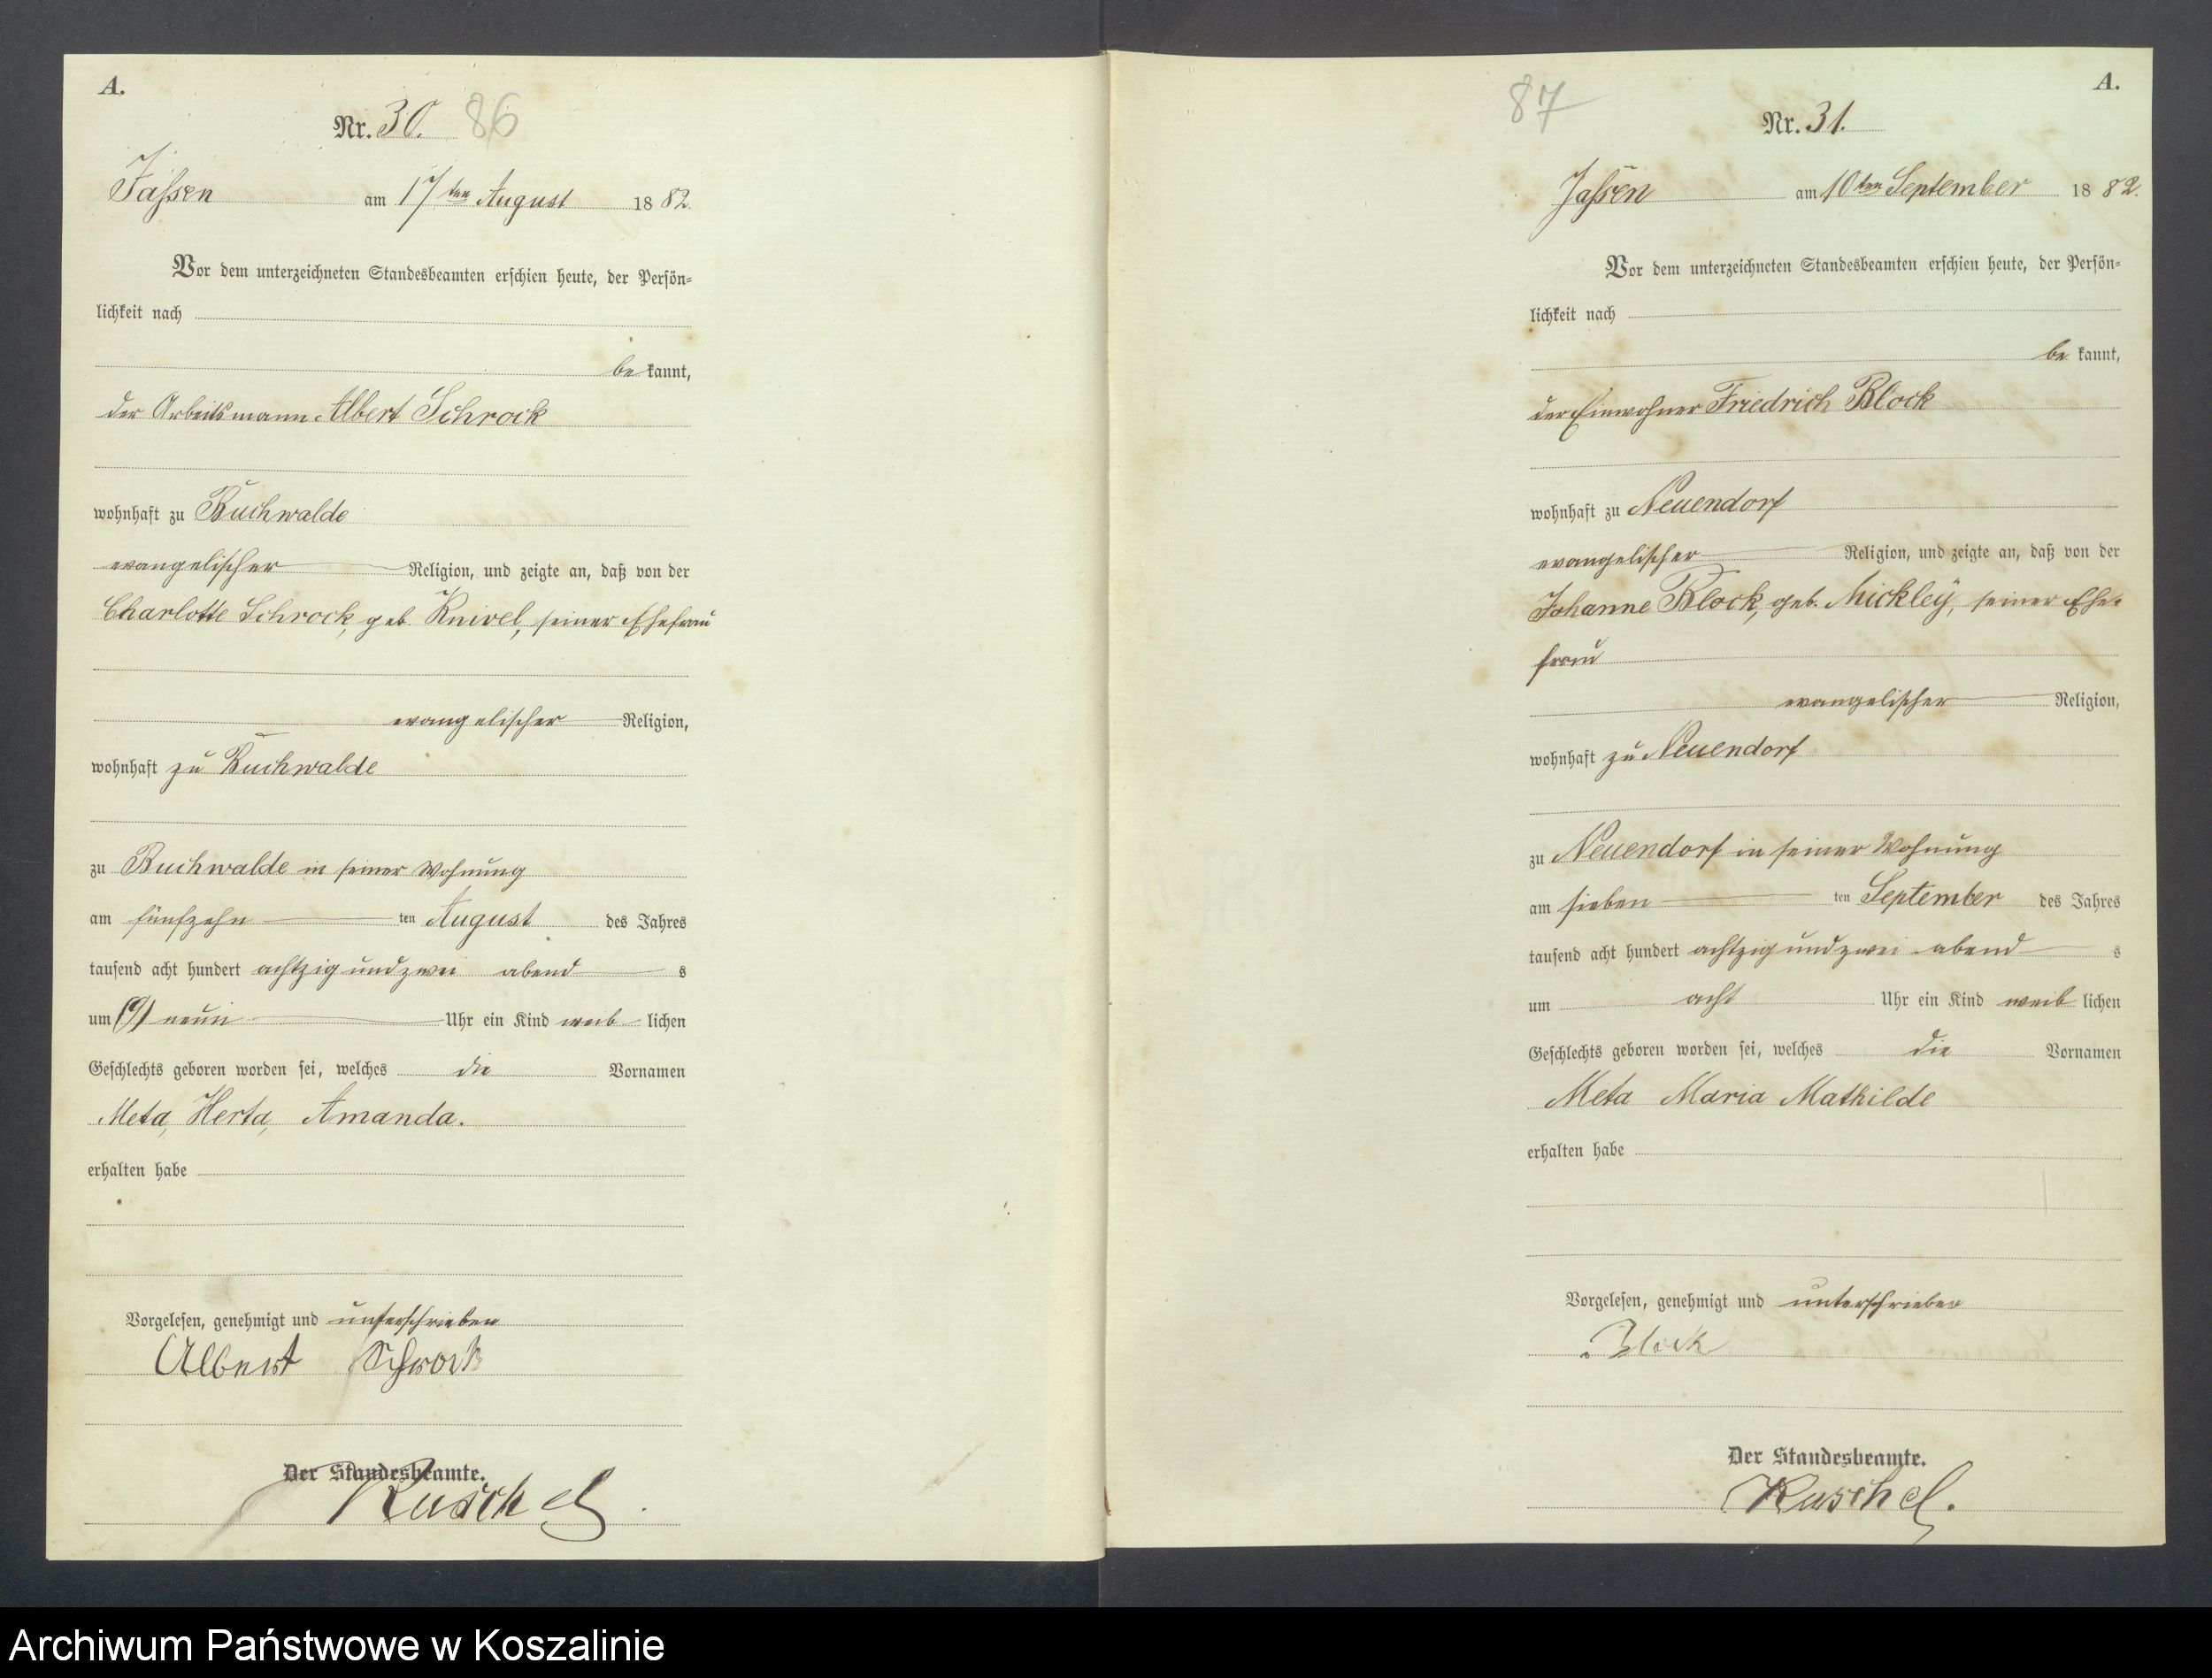 A.
Nr. 30. 86
Jassen am 17ten August 1882.
Vor dem unterzeichneten Standesbeamten erschien heute, der Persön-
lichkeit nach
be kannt,
der Arbeitsmann Albert Schrock
wohnhaft zu Buchwalde
evangelischer Religion, und zeigte an, daß von der
Charlotte Schrock, geb. Knivel, seiner Ehefrau
evangelischer Religion,
wohnhaft zu Buchwalde
zu Buchwalde in seiner Wohnung
am fünfzehn ten August des Jahres
tausend acht hundert achtzig und zwei abend s
um (9) neun Uhr ein Kind weib lichen
Geschlechts geboren worden sei, welches die Vornamen
Meta, Herta, Amanda.
erhalten habe
Vorgelesen, genehmigt und unterschrieben
Albert Schrock
Der Standesbeamte.
Ruschel.
A.
87
Nr. 31.
Jassen am 10ten September 1882.
Vor dem unterzeichneten Standesbeamten erschien heute, der Persön-
lichkeit nach
be kannt,
der Einwohner Friedrich Block
wohnhaft zu Neuendorf
evangelischer Religion, und zeigte an, daß von der
Johanne Block, geb. Mickley, seiner Ehe-
frau
evangelischer Religion,
wohnhaft zu Neuendorf
zu Neuendorf in seiner Wohnung
am sieben ten September des Jahres
tausend acht hundert achtzig und zwei abend s
um acht Uhr ein Kind weib lichen
Geschlechts geboren worden sei, welches die Vornamen
Meta Maria Mathilde
erhalten habe
Vorgelesen, genehmigt und unterschrieben
Block
Der Standesbeamte.
Ruschel.
Archiwum Państwowe w Koszalinie